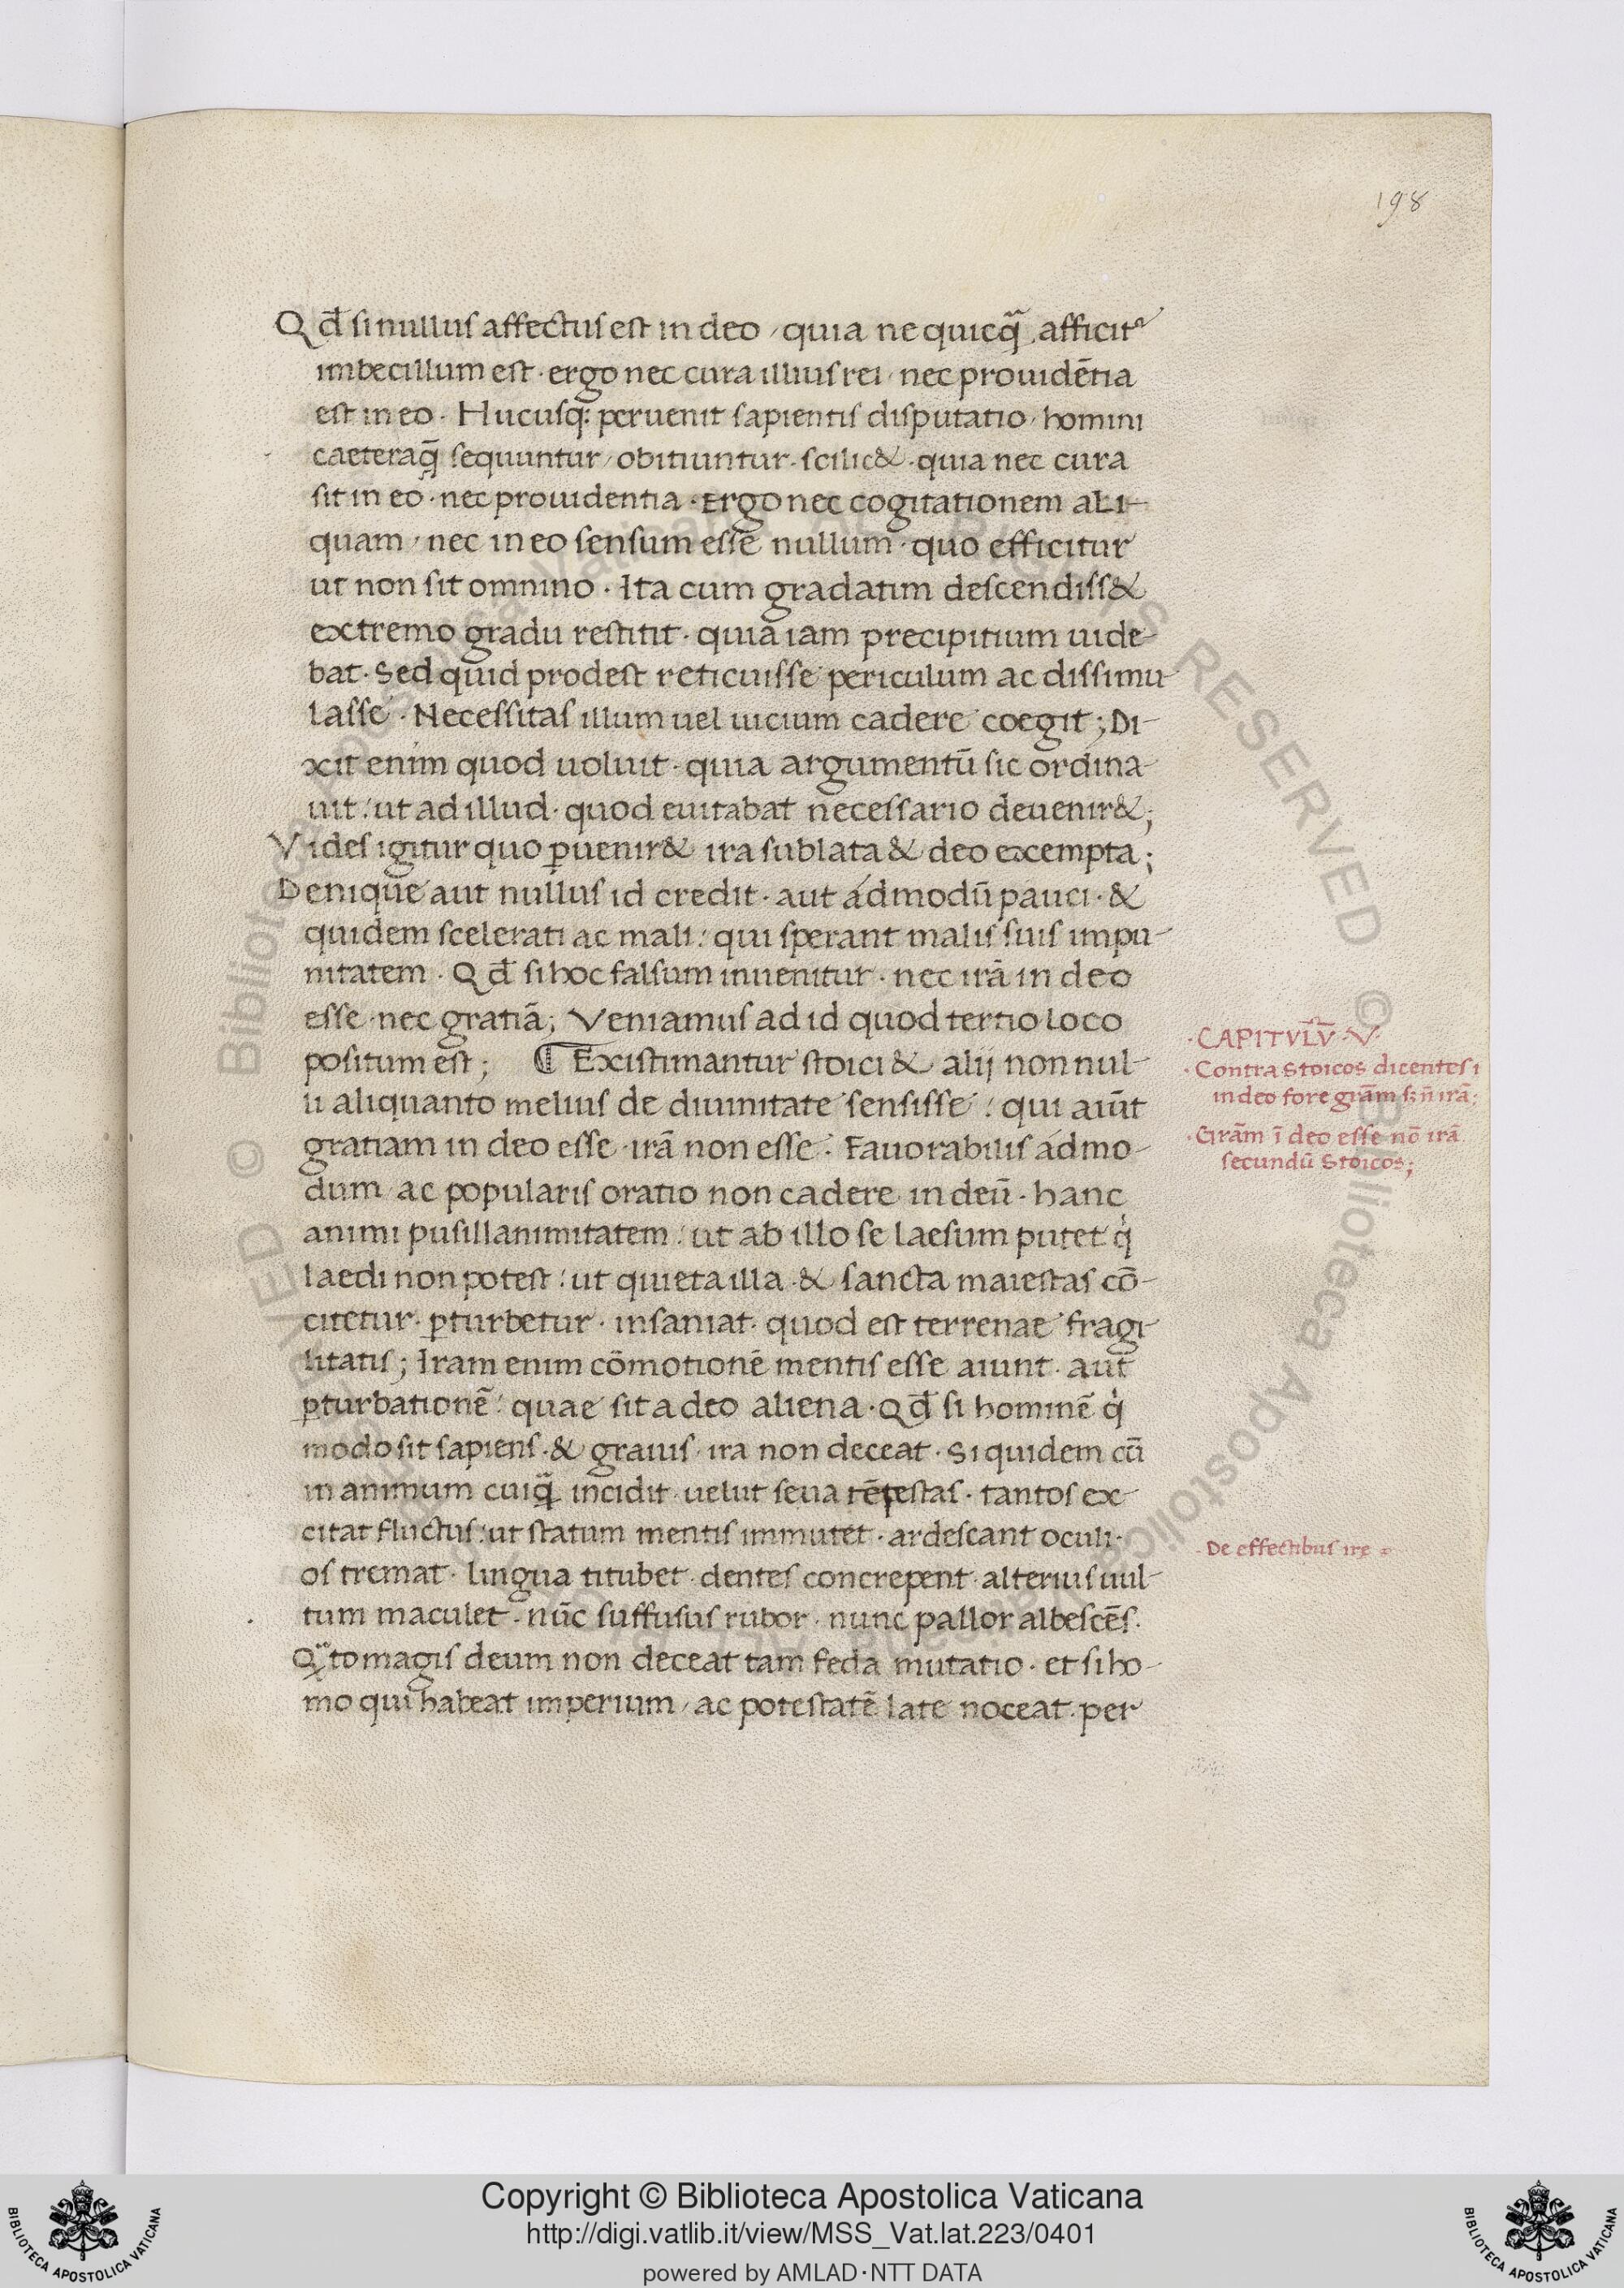 198
Qđ si nullus affectus est in deo, quia ne quicq̄ afficit᷑
imbecillum est. ergo nec cura illius rei, nec prouidētia
est in eo. Hucusq; peruenit sapientis disputatio, homini
caeteraq̄ sequuntur, obitiuntur. scilic&. quia nec cura
sit in eo. nec prouidentia. Ergo nec cogitationem ali-
quam, nec in eo sensum esse nullum. quo efficitur
ut non sit omnino. Ita cum gradatim descendiss&
extremo gradu restitit. quia iam precipitium uide-
bat. Sed quid prodest reticuisse periculum ac dissimu-
lasse. Necessitas illum uel iuicium cadere coegit; Di-
xit enim quod uoluit. quia argumentū sic ordina-
uit: ut ad illud. quod euitabat necessario deuenir&;
Vides igitur quo ꝑuenir& ira sublata & deo exempta;
Denique aut nullus id credit. aut admodū pauci. &
quidem scelerati ac mali: qui sperant malis suis impu-
nitatem. Qđ si hoc falsum inuenitur. nec irā in deo
esse. nec gratiā; Veniamus ad id quod tertio loco
positum est; ¶ Existimantur stoici & alij nonnul-
li aliquanto melius de diuinitate sensisse: qui aiūt
gratiam in deo esse. irā non esse. Fauorabilis admo-
dum, ac popularis oratio non cadere in deū. hanc
animi pusillanimitatem: ut ab illo se laesum putet q̇
laedi non potest: ut quieta illa. & sancta maiestas cō-
citetur. ꝑturbetur. insaniat. quod est terrenae fragi-
litatis; Iram enim cōmotionē mentis esse aiunt. aut
ꝑturbationē: quae sit a deo aliena. Qđ si hominē q̇
modo sit sapiens. & grauis. ira non deceat. Siquidem cū
in animum cuiq̄ incidit. uelut seua tēpestas. tantos ex-
citat fluctus: ut statum mentis immutet. ardescant oculi.
os tremat. lingua titubet. dentes concrepent. alterius uul-
tum maculet. nūc suffusus rubor. nunc pallor albescēs.
Qᷓto magis deum non deceat tam feda mutatio. et si ho-
mo qui habeat imperium, ac potestatē late noceat. per
.CAPITVLV̄.V.
.Contra Stoicos dicentes
in deo fore grām s; n̄ irā;
.Grām ī deo esse nō irā
secundū Stoicos;
.De effectibus ire
© Biblioteca Apostolica Vaticana ALL RIGHTS RESERVED
Copyright © Biblioteca Apostolica Vaticana
http://digi.vatlib.it/view/MSS_Vat.lat.223/0401
powered by AMLAD·NTT DATA
BIBLIOTECA APOSTOLICA VATICANA
BIBLIOTECA APOSTOLICA VATICANA